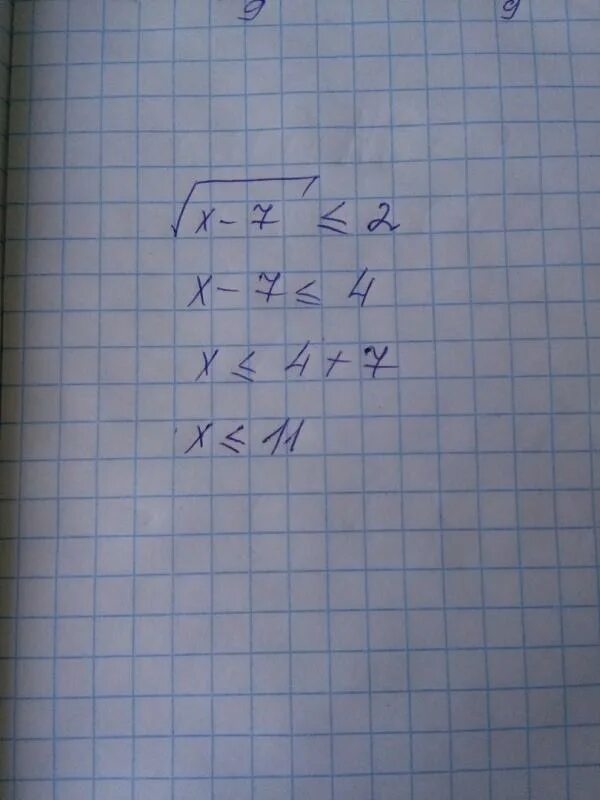 9 9
√x-7 ≤ 2
x-7 ≤ 4
x ≤ 4+7
x ≤ 11